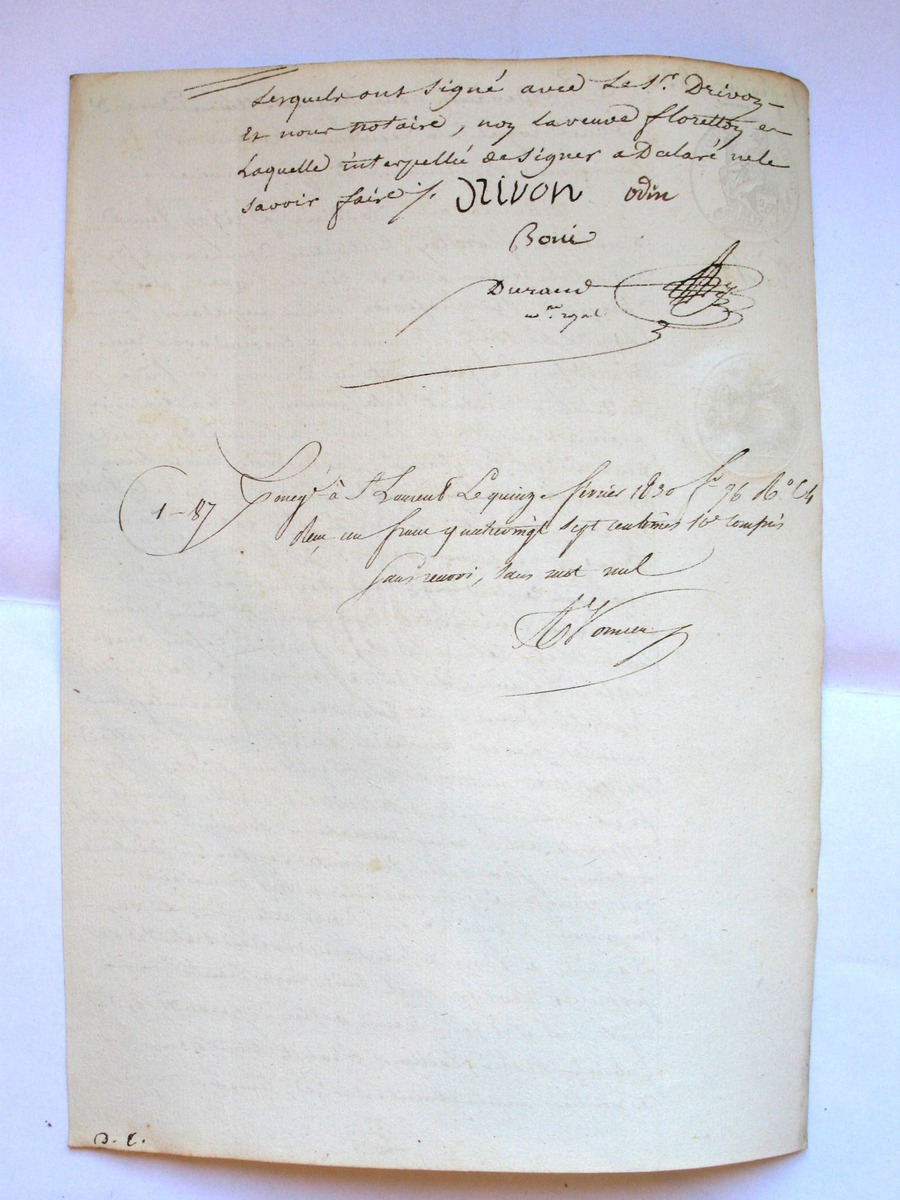 Lesquels ont signé avec Le Sr. Drivon
Et nous notaire, non La veuve floretton
Laquelle interpellée de signer a Déclaré ne le
savoir faire /.
Drivon odin
Boué
Durand
nre. royal
1-87
Enregé à St Laurent Le quinze février 1830 fo 96 Ro C 4
Reçu un franc quatrevingt sept centimes 10e compris
Sans renvoi, sans mot nul
D. E.